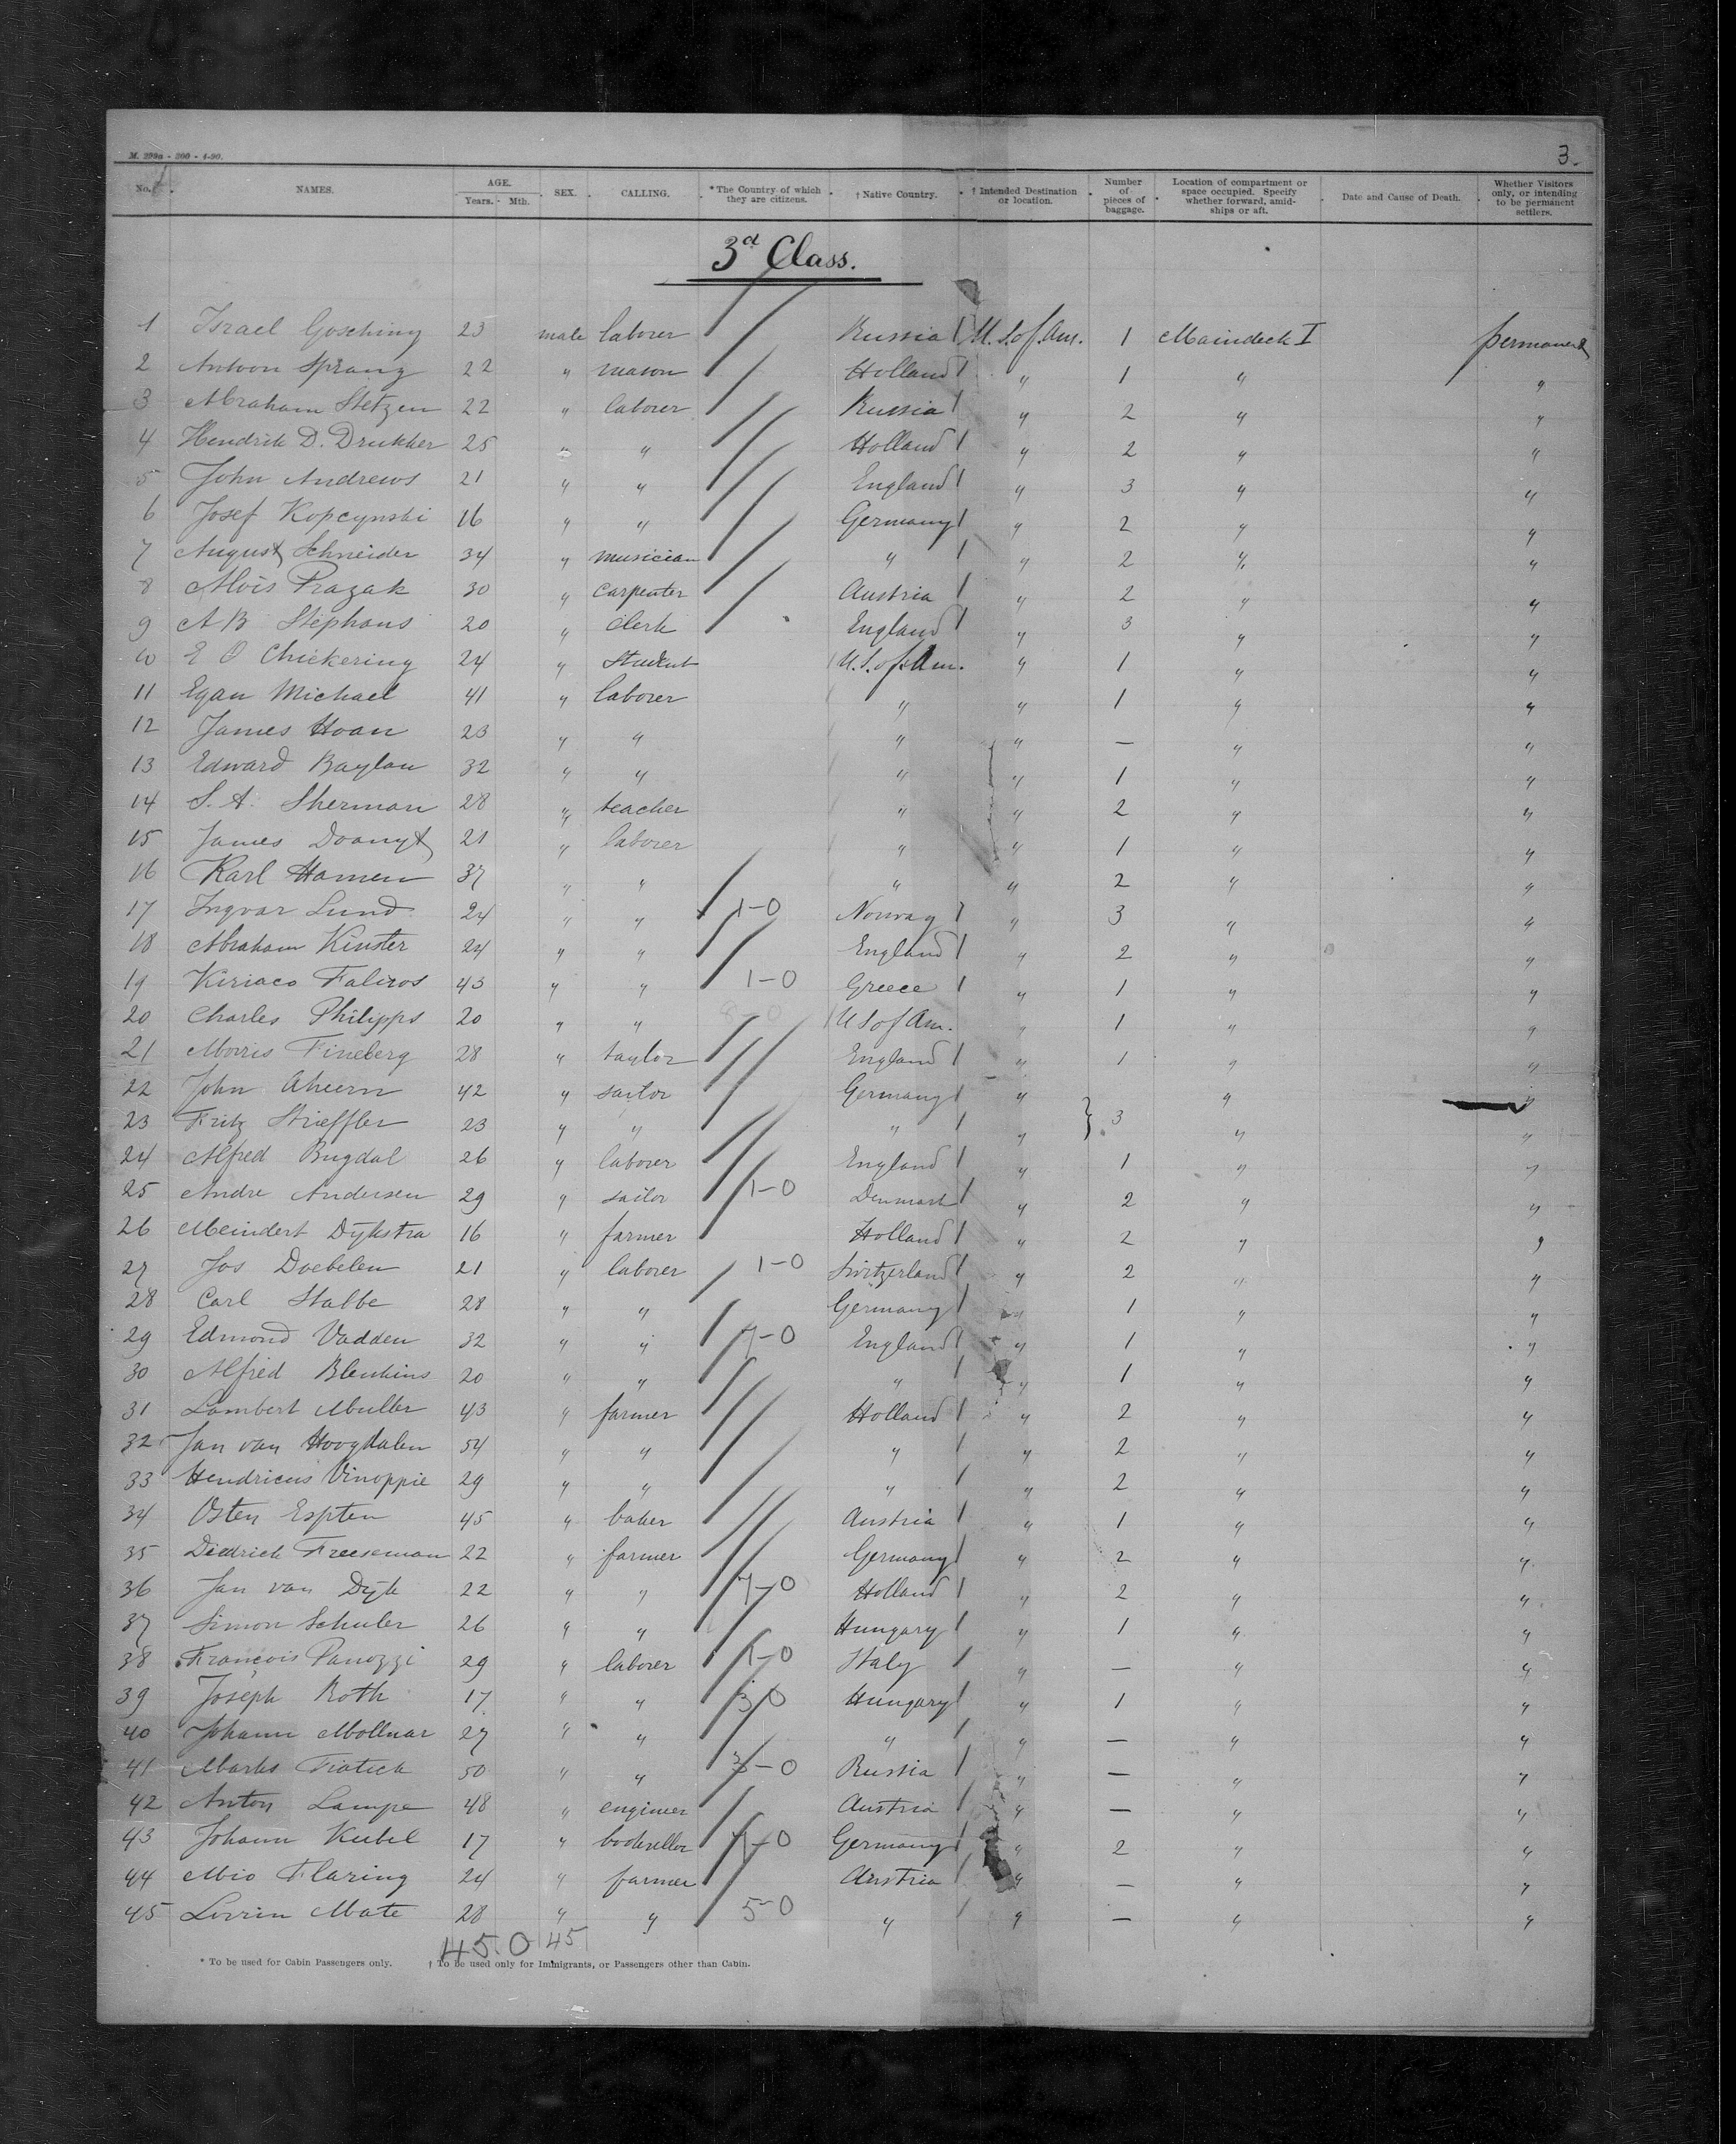 M. 299a - 300 - 4-90.
3.
No. NAMES. AGE. Years. Mth. SEX. CALLING. * The Country of which they are citizens. † Native Country. † Intended Destination or location. Number of pieces of baggage. Location of compartment or space occupied. Specify whether forward, amid-ships or aft. Date and Cause of Death. Whether Visitors only, or intending to be permanent settlers.
3d Class.
1 Israel Gosching 23 male laborer Russia U. S. of Am. 1 Maindeck I permanent
2 Antoon Sprang 22 " mason Holland " 1 " "
3 Abraham Stetzen 22 " laborer Russia " 2 " "
4 Hendrik D. Drukker 25 " " Holland " 2 " "
5 John Andrews 21 " " England " 3 " "
6 Josef Kopcynski 16 " " Germany " 2 " "
7 August Schneider 34 " musician " " 2 " "
8 Alois Prazak 30 " carpenter Austria " 2 " "
9 A B Stephans 20 " clerk England " 3 " "
10 E O Chickering 24 " Student U. S. of Am. " 1 " "
11 Egan Michael 41 " laborer " " 1 " "
12 James Hoan 23 " " " " — " "
13 Edward Baylan 32 " " " " 1 " "
14 S. A. Sherman 28 " teacher " " 2 " "
15 James 21 " laborer " " 1 " "
16 Karl Hamen 37 " " " " 2 " "
17 Ingvar Lund 24 " " 1-0 Norway " 3 " "
18 Abraham Kinster 24 " " England " 2 " "
19 Kiriaco Faliros 43 " " 1-0 Greece " 1 " "
20 Charles Philipps 20 " " U S of Am. " 1 " "
21 Morris Fineberg 28 " taylor England " 1 " "
22 John Ahern 42 " sailor Germany " } 3 " "
23 Fritz Strieffler 23 " " " " " "
24 Alfred Bugdal 26 " laborer England " 1 " "
25 Andre Andersen 29 " sailor 1-0 Denmark " 2 " "
26 Meindert Dijkstra 16 " farmer Holland " 2 " "
27 Jos Doebelen 21 " laborer 1-0 Switzerland " 2 " "
28 Carl Stalbe 28 " " Germany " 1 " "
29 Edmond Vadden 32 " " 7-0 England " 1 " "
30 Alfred Blenkins 20 " " " " 1 " "
31 Lambert Muller 43 " farmer Holland " 2 " "
32 Jan van Hoogdalen 54 " " " " 2 " "
33 Hendricus Vinoppie 29 " " " " 2 " "
34 Osten Espten 45 " baker Austria " 1 " "
35 Diedrich Freeseman 22 " farmer Germany " 2 " "
36 Jan van Dijk 22 " " 7-0 Holland " 2 " "
37 Simon Schuler 26 " " Hungary " 1 " "
38 Francois Panozzi 29 " laborer 1-0 Italy " — " "
39 Joseph Roth 17 " " 3 0 Hungary " 1 " "
40 Johann Mollnar 27 " " " " — " "
41 Marks Fiatick 50 " " 3-0 Russia " — " "
42 Anton Lampe 48 " engineer Austria " — " "
43 Johann Kubel 17 " bookseller 7-0 Germany " 2 " "
44 Mio Flaring 24 " farmer Austria " — " "
45 Lovrin Mate 28 " " 5-0 " " — " "
45.0 45
* To be used for Cabin Passengers only. † To be used only for Immigrants, or Passengers other than Cabin.